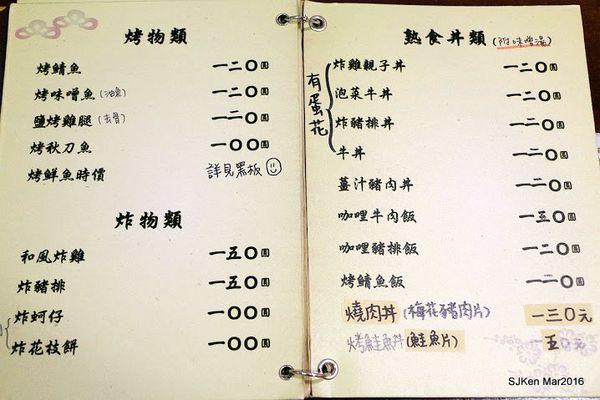 烤物類
烤鯖魚 一二〇圓
烤味噌魚(油魚) 一二〇圓
鹽烤雞腿(去骨) 一二〇圓
烤秋刀魚 一〇〇圓
烤鮮魚時價 詳見黑板
炸物類
和風炸雞 一五〇圓
炸豬排 一五〇圓
炸蚵仔 一〇〇圓
炸花枝餅 一〇〇圓
熟食丼類(附味噌湯)
有蛋花
炸雞親子丼 一二〇圓
泡菜牛丼 一二〇圓
炸豬排丼 一二〇圓
牛丼 一二〇圓
薑汁豬肉丼 一二〇圓
咖哩牛肉飯 一五〇圓
咖哩豬排飯 一二〇圓
烤鯖魚飯 一二〇圓
燒肉丼(梅花豬肉片) 一三〇元
烤鮭魚丼(鮭魚片) 一五〇元
SJKen Mar2016